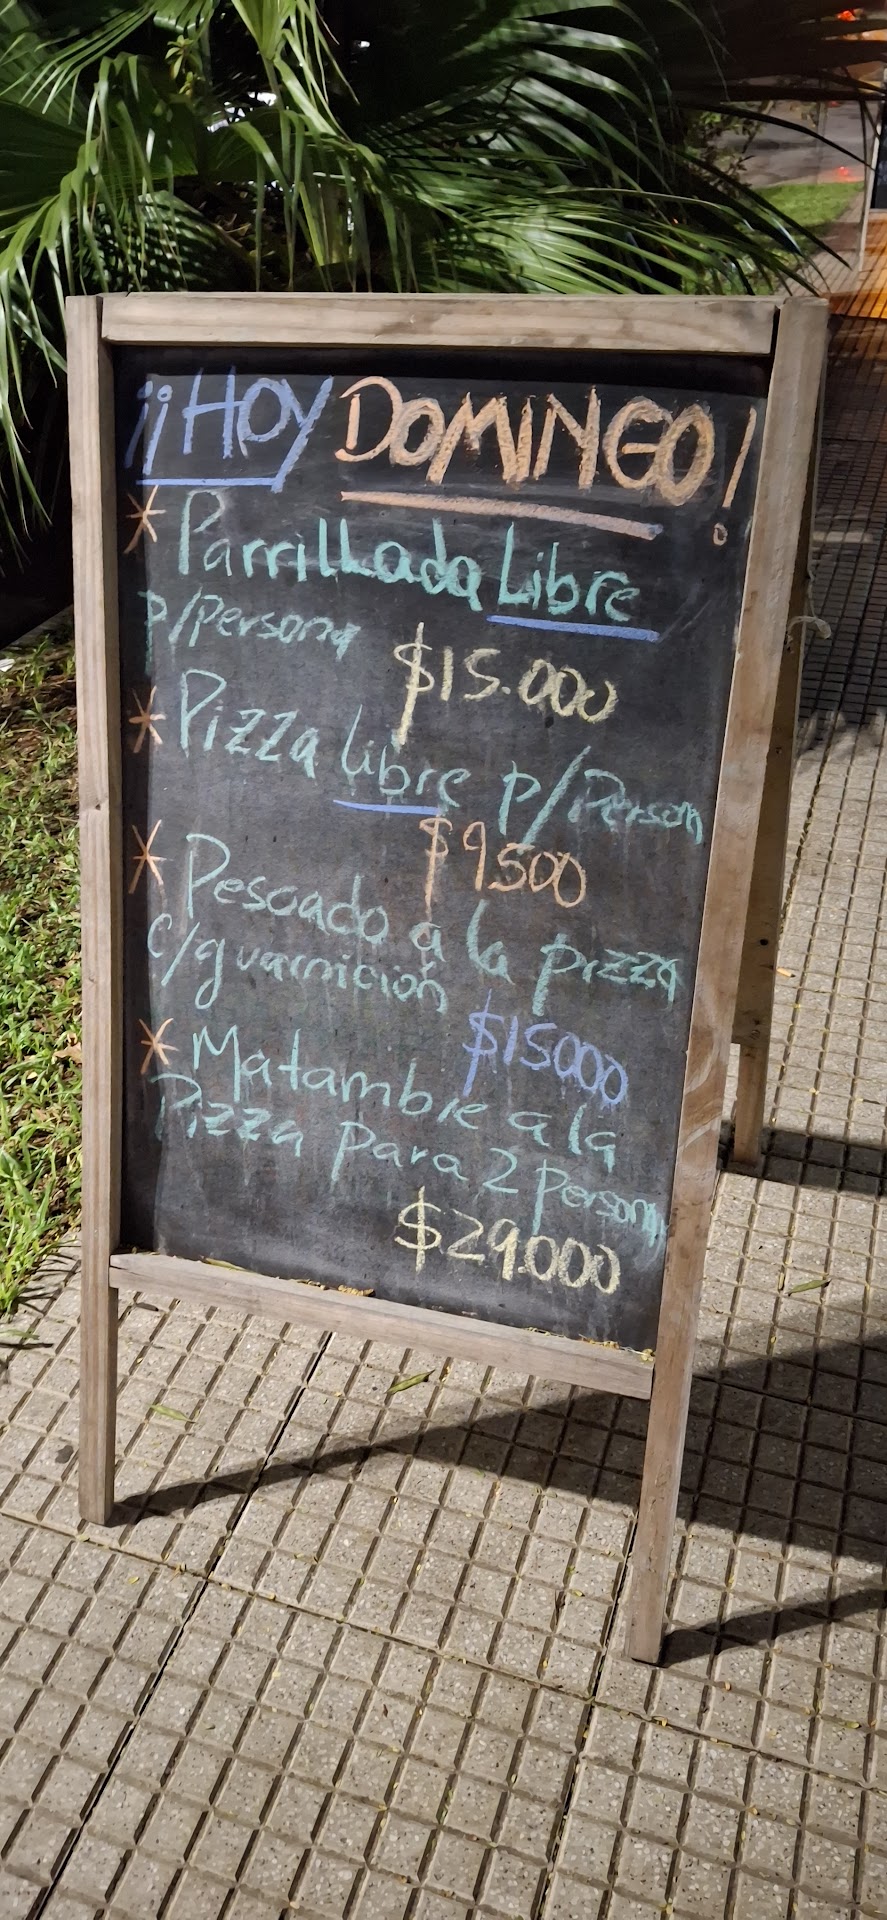 ¡¡HOY DOMINGO!
* Parrillada Libre
p/Persona
$15.000
* Pizza Libre p/Person
$9500
* Pescado a la pizza
c/guarnición
$15000
* Matambre a la
Pizza para 2 personas
$29.000